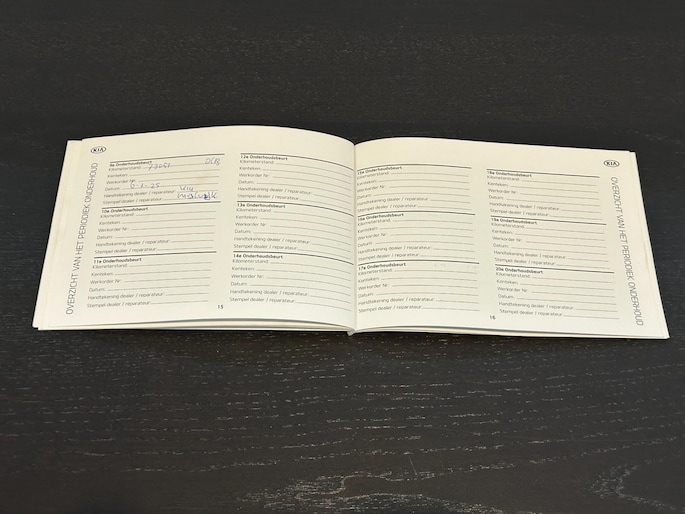 KIA
OVERZICHT VAN HET PERIODIEK ONDERHOUD
9e Onderhoudsbeurt
Kilometerstand:
Kenteken:
Werkorder Nr:
Datum:
Handtekening dealer / reparateur:
Stempel dealer / reparateur:
10e Onderhoudsbeurt
Kilometerstand:
Kenteken:
Werkorder Nr:
Datum:
Handtekening dealer / reparateur:
Stempel dealer / reparateur:
11e Onderhoudsbeurt
Kilometerstand:
Kenteken:
Werkorder Nr:
Datum:
Handtekening dealer / reparateur:
Stempel dealer / reparateur:
12e Onderhoudsbeurt
Kilometerstand:
Kenteken:
Werkorder Nr:
Datum:
Handtekening dealer / reparateur:
Stempel dealer / reparateur:
13e Onderhoudsbeurt
Kilometerstand:
Kenteken:
Werkorder Nr:
Datum:
Handtekening dealer / reparateur:
Stempel dealer / reparateur:
14e Onderhoudsbeurt
Kilometerstand:
Kenteken:
Werkorder Nr:
Datum:
Handtekening dealer / reparateur:
Stempel dealer / reparateur:
15
15e Onderhoudsbeurt
Kilometerstand:
Kenteken:
Werkorder Nr:
Datum:
Handtekening dealer / reparateur:
Stempel dealer / reparateur:
16e Onderhoudsbeurt
Kilometerstand:
Kenteken:
Werkorder Nr:
Datum:
Handtekening dealer / reparateur:
Stempel dealer / reparateur:
17e Onderhoudsbeurt
Kilometerstand:
Kenteken:
Werkorder Nr:
Datum:
Handtekening dealer / reparateur:
Stempel dealer / reparateur:
18e Onderhoudsbeurt
Kilometerstand:
Kenteken:
Werkorder Nr:
Datum:
Handtekening dealer / reparateur:
Stempel dealer / reparateur:
19e Onderhoudsbeurt
Kilometerstand:
Kenteken:
Werkorder Nr:
Datum:
Handtekening dealer / reparateur:
Stempel dealer / reparateur:
20e Onderhoudsbeurt
Kilometerstand:
Kenteken:
Werkorder Nr:
Datum:
Handtekening dealer / reparateur:
Stempel dealer / reparateur:
16
KIA
OVERZICHT VAN HET PERIODIEK ONDERHOUD